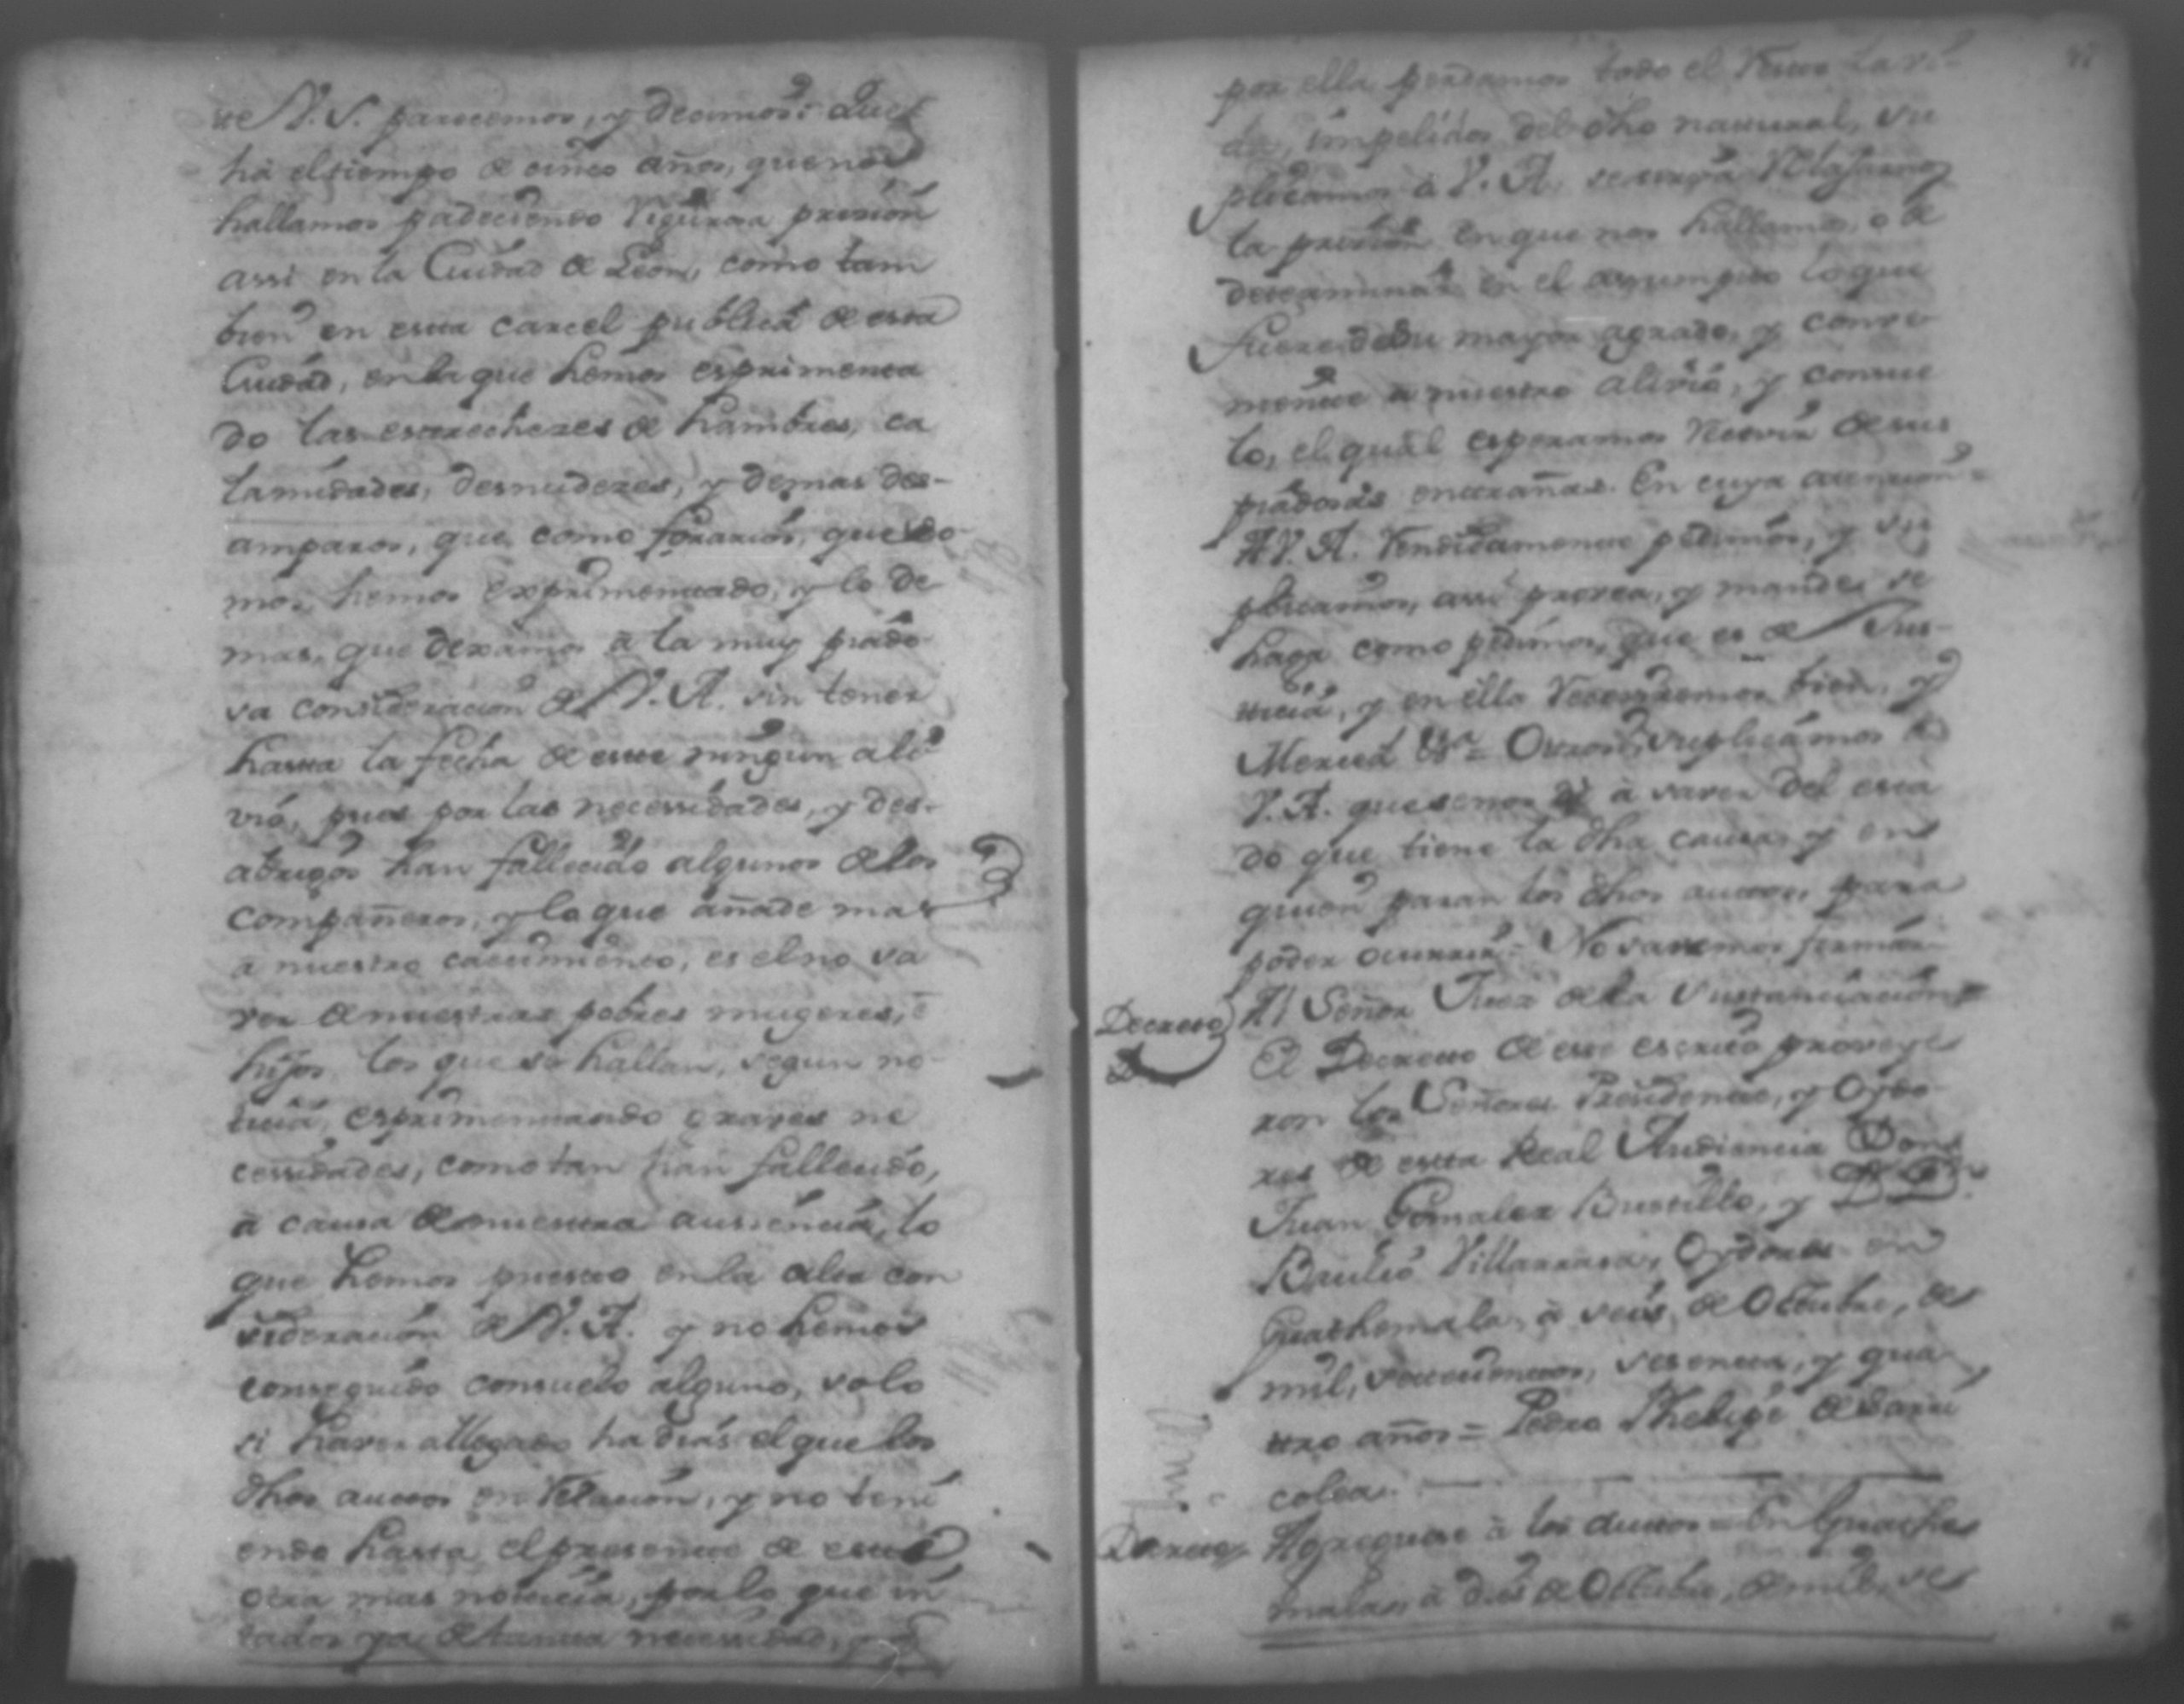 te V. S. parecemos, y decimos: Que
hà el tiempo de cinco años, que nos
hallamos padeciendo rigurosa prision
assi en la Ciudad de Leon, como tam
bien en esta carcel publica de esta
Ciudad, en la que hemos esprimenta
do las estrechezes de hambres, ca
lamidades, desnudezes, y demas des-
amparos, que como foraneos, que so
mos, hemos exprimentado, y lo de
mas, que dexamos à la muy piado
sa consideracion de V. A. sin tener
hasta la fecha de este ningun ali
vio, pues por las necessidades, y des-
abrigos han fallecido algunos de los
compañeros, y lo que añade mas
a nuestro es el no sa
ver de nuestras pobres mugeres, è
hijos, los que se hallan, segun no
ticia, esprimentando graves ne
cessidades, como tan han fallecido,
à causa de nuestra aussencia, lo
que hemos puesto en la alta con
sideracion de V. A. y no hemos
conseguido consuelo alguno, solo
si haver allegado ha dias el que los
dhos autos en relacion, y no teni
endo hasta el presente de esta
otra mas noticia, por lo que in
tados ya de tanta necessidad, y
por ella perdamos todo el resto la vi
da, impelidos del dho natural, su
plicamos à V. A. se sirva relajarnos
la prision en que nos hallamos, o de
determinar en el assumpto lo que
fuere de su mayor agrado, y conve
niente a nuestro alivio, y consue
lo, el qual esperamos recevir de sus
piadosas entrañas. En cuya atencion
A V. A. rendidamente pedimos, y su
plicamos, assi provea, y mande se
haga como pedimos, que es de Jus-
ticia, y en ella receviremos bien, y
Merced &a = Otrosi suplicamos à
V. A. que se nos dè à saver del esta
do que tiene la dha causa, y en
quien paran los dhos autos, para
poder ocurrir = No savemos firmar
Decreto Al Señor Juez de la Sustanciacion
El Decreto de este escrito proveye
ron los Señores Presidente, y Oydo
res de esta Real Audiencia Don
Juan Gonzalez Bustillo, y Dn
Basilio Villarrasa, Oydores en
Guathemala, à seis, de Octubre, de
mil, setecientos, sesenta, y qua
tro años = Pedro Phelipe de Barri
colea.
Decreto Agreguese à los autos = En Guathe
mala, à dies de Octubre, de mil, se